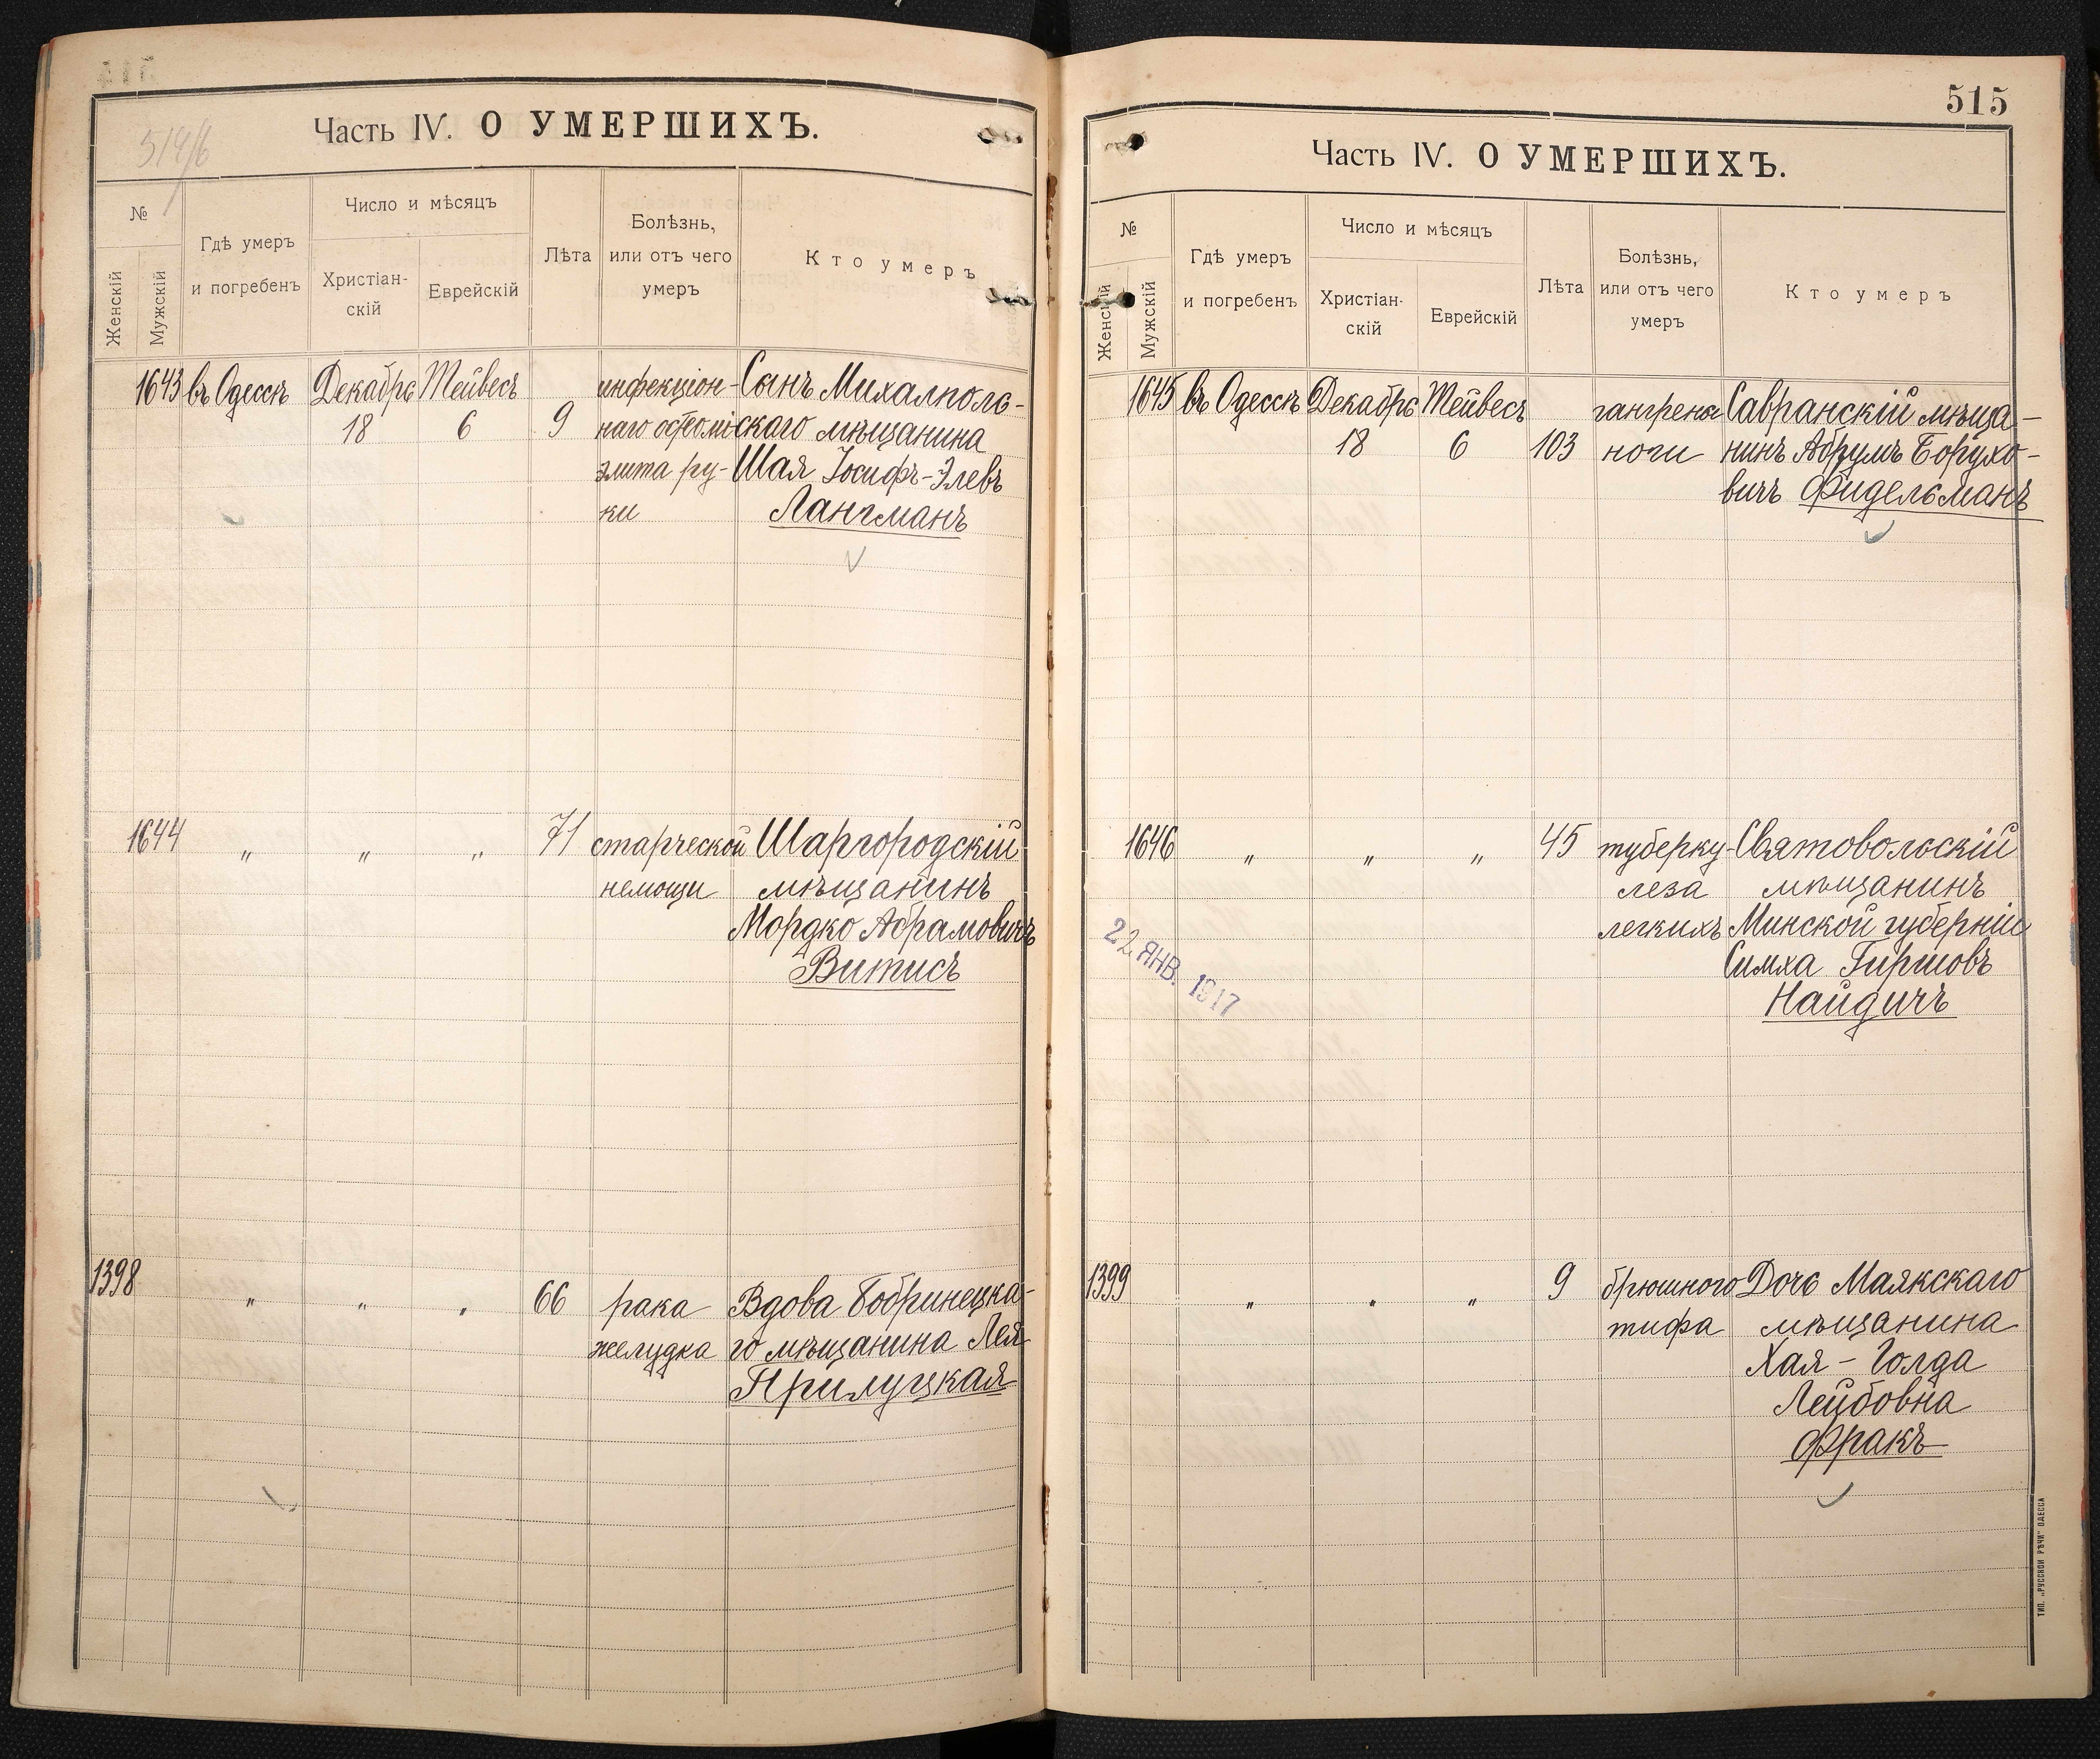 514/б
Часть IV. О УМЕРШИХЪ.
№
Женскій
Мужскій
Гдѣ умеръ
и погребенъ
Число и мѣсяцъ
Христіан-
скій
Еврейскій
Лѣта
Болѣзнь,
или отъ чего
умеръ
Кто умеръ
1643 въ Одессѣ Декабрь Тейвесъ инфекціон- Сынъ Михалполь-
18 6 9 наго остеомі скаго мѣщанина
элита ру- Шая Іосифъ-Элевъ
ки Лангманъ
1644 " " " 71 старческой Шаргородскій
немощи мѣщанинъ
Мордко Абрамовичъ
Витисъ
1398 " " " 66 рака Вдова Бобринецка-
желудка го мѣщанина Лея
Прилуцкая
515
Часть IV. О УМЕРШИХЪ.
№
Женскій
Мужскій
Гдѣ умеръ
и погребенъ
Число и мѣсяцъ
Христіан-
скій
Еврейскій
Лѣта
Болѣзнь,
или отъ чего
умеръ
Кто умеръ
1645 въ Одессѣ Декабрь Тейвесъ гангрены Савранскій мѣща-
18 6 103 ноги нинъ Абрумъ Борухо-
вичъ Фидельманъ
1646 " " " 45 туберку- Святовольскій
леза мѣщанинъ
легкихъ Минской губерніи
Симха Гиршовъ
Найдичъ
22 ЯНВ. 1917
1399 " " " 9 брюшного Дочь Маякскаго
тифа мѣщанина
Хая-Голда
Лейбовна
Фракъ
ТИП. „РУССКОЙ РѢЧИ" ОДЕССА